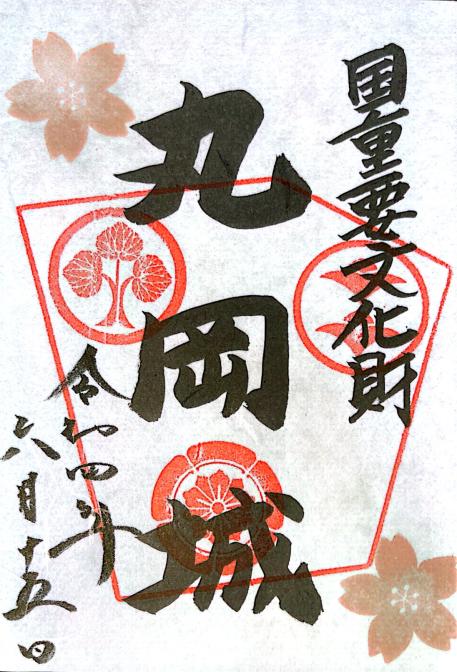 国重要文化財
丸岡城
令和四年
六月十五日